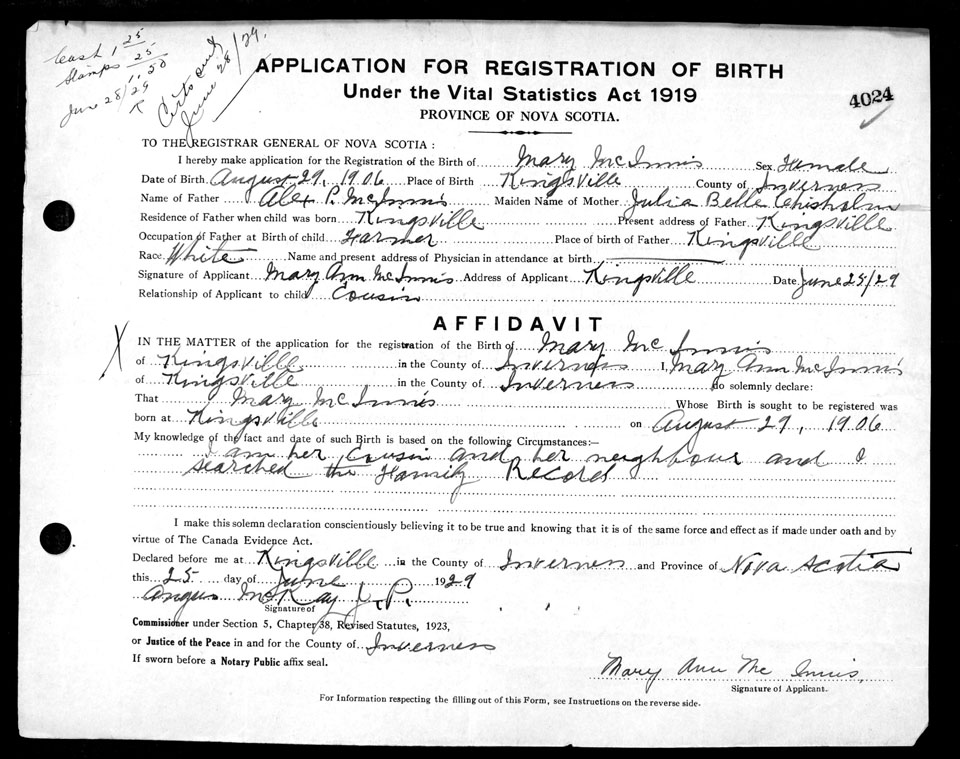 Cash 1 25
Stamps 25
1.50
June 28/29
R
Certs and
June 28/29.
APPLICATION FOR REGISTRATION OF BIRTH
Under the Vital Statistics Act 1919
PROVINCE OF NOVA SCOTIA.
4024
TO THE REGISTRAR GENERAL OF NOVA SCOTIA:
I hereby make application for the Registration of the Birth of Mary McInnis Sex Female
Date of Birth August 29, 1906 Place of Birth Kingsville County of Inverness
Name of Father Alex P. McInnis Maiden Name of Mother Julia Belle Chisholm
Residence of Father when child was born Kingsville Present address of Father Kingsville
Occupation of Father at Birth of child Farmer Place of birth of Father Kingsville
Race White Name and present address of Physician in attendance at birth
Signature of Applicant Mary Ann McInnis Address of Applicant Kingsville Date June 25/29
Relationship of Applicant to child Cousin
AFFIDAVIT
X
IN THE MATTER of the application for the registration of the Birth of Mary McInnis
of Kingsville in the County of Inverness I, Mary Ann McInnis
of Kingsville in the County of Inverness do solemnly declare:
That Mary McInnis Whose Birth is sought to be registered was
born at Kingsville on August 29, 1906
My knowledge of the fact and date of such Birth is based on the following Circumstances:—
I am her Cousin and her neighbour and I
searched the Family Record
I make this solemn declaration conscientiously believing it to be true and knowing that it is of the same force and effect as if made under oath and by
virtue of The Canada Evidence Act.
Declared before me at Kingsville in the County of Inverness and Province of Nova Scotia
this 25 day of June 1929
Angus McKay J.P.
Signature of
Commissioner under Section 5, Chapter 38, Revised Statutes, 1923,
or Justice of the Peace in and for the County of Inverness
If sworn before a Notary Public affix seal.
Mary Ann McInnis,
Signature of Applicant.
For Information respecting the filling out of this Form, see Instructions on the reverse side.